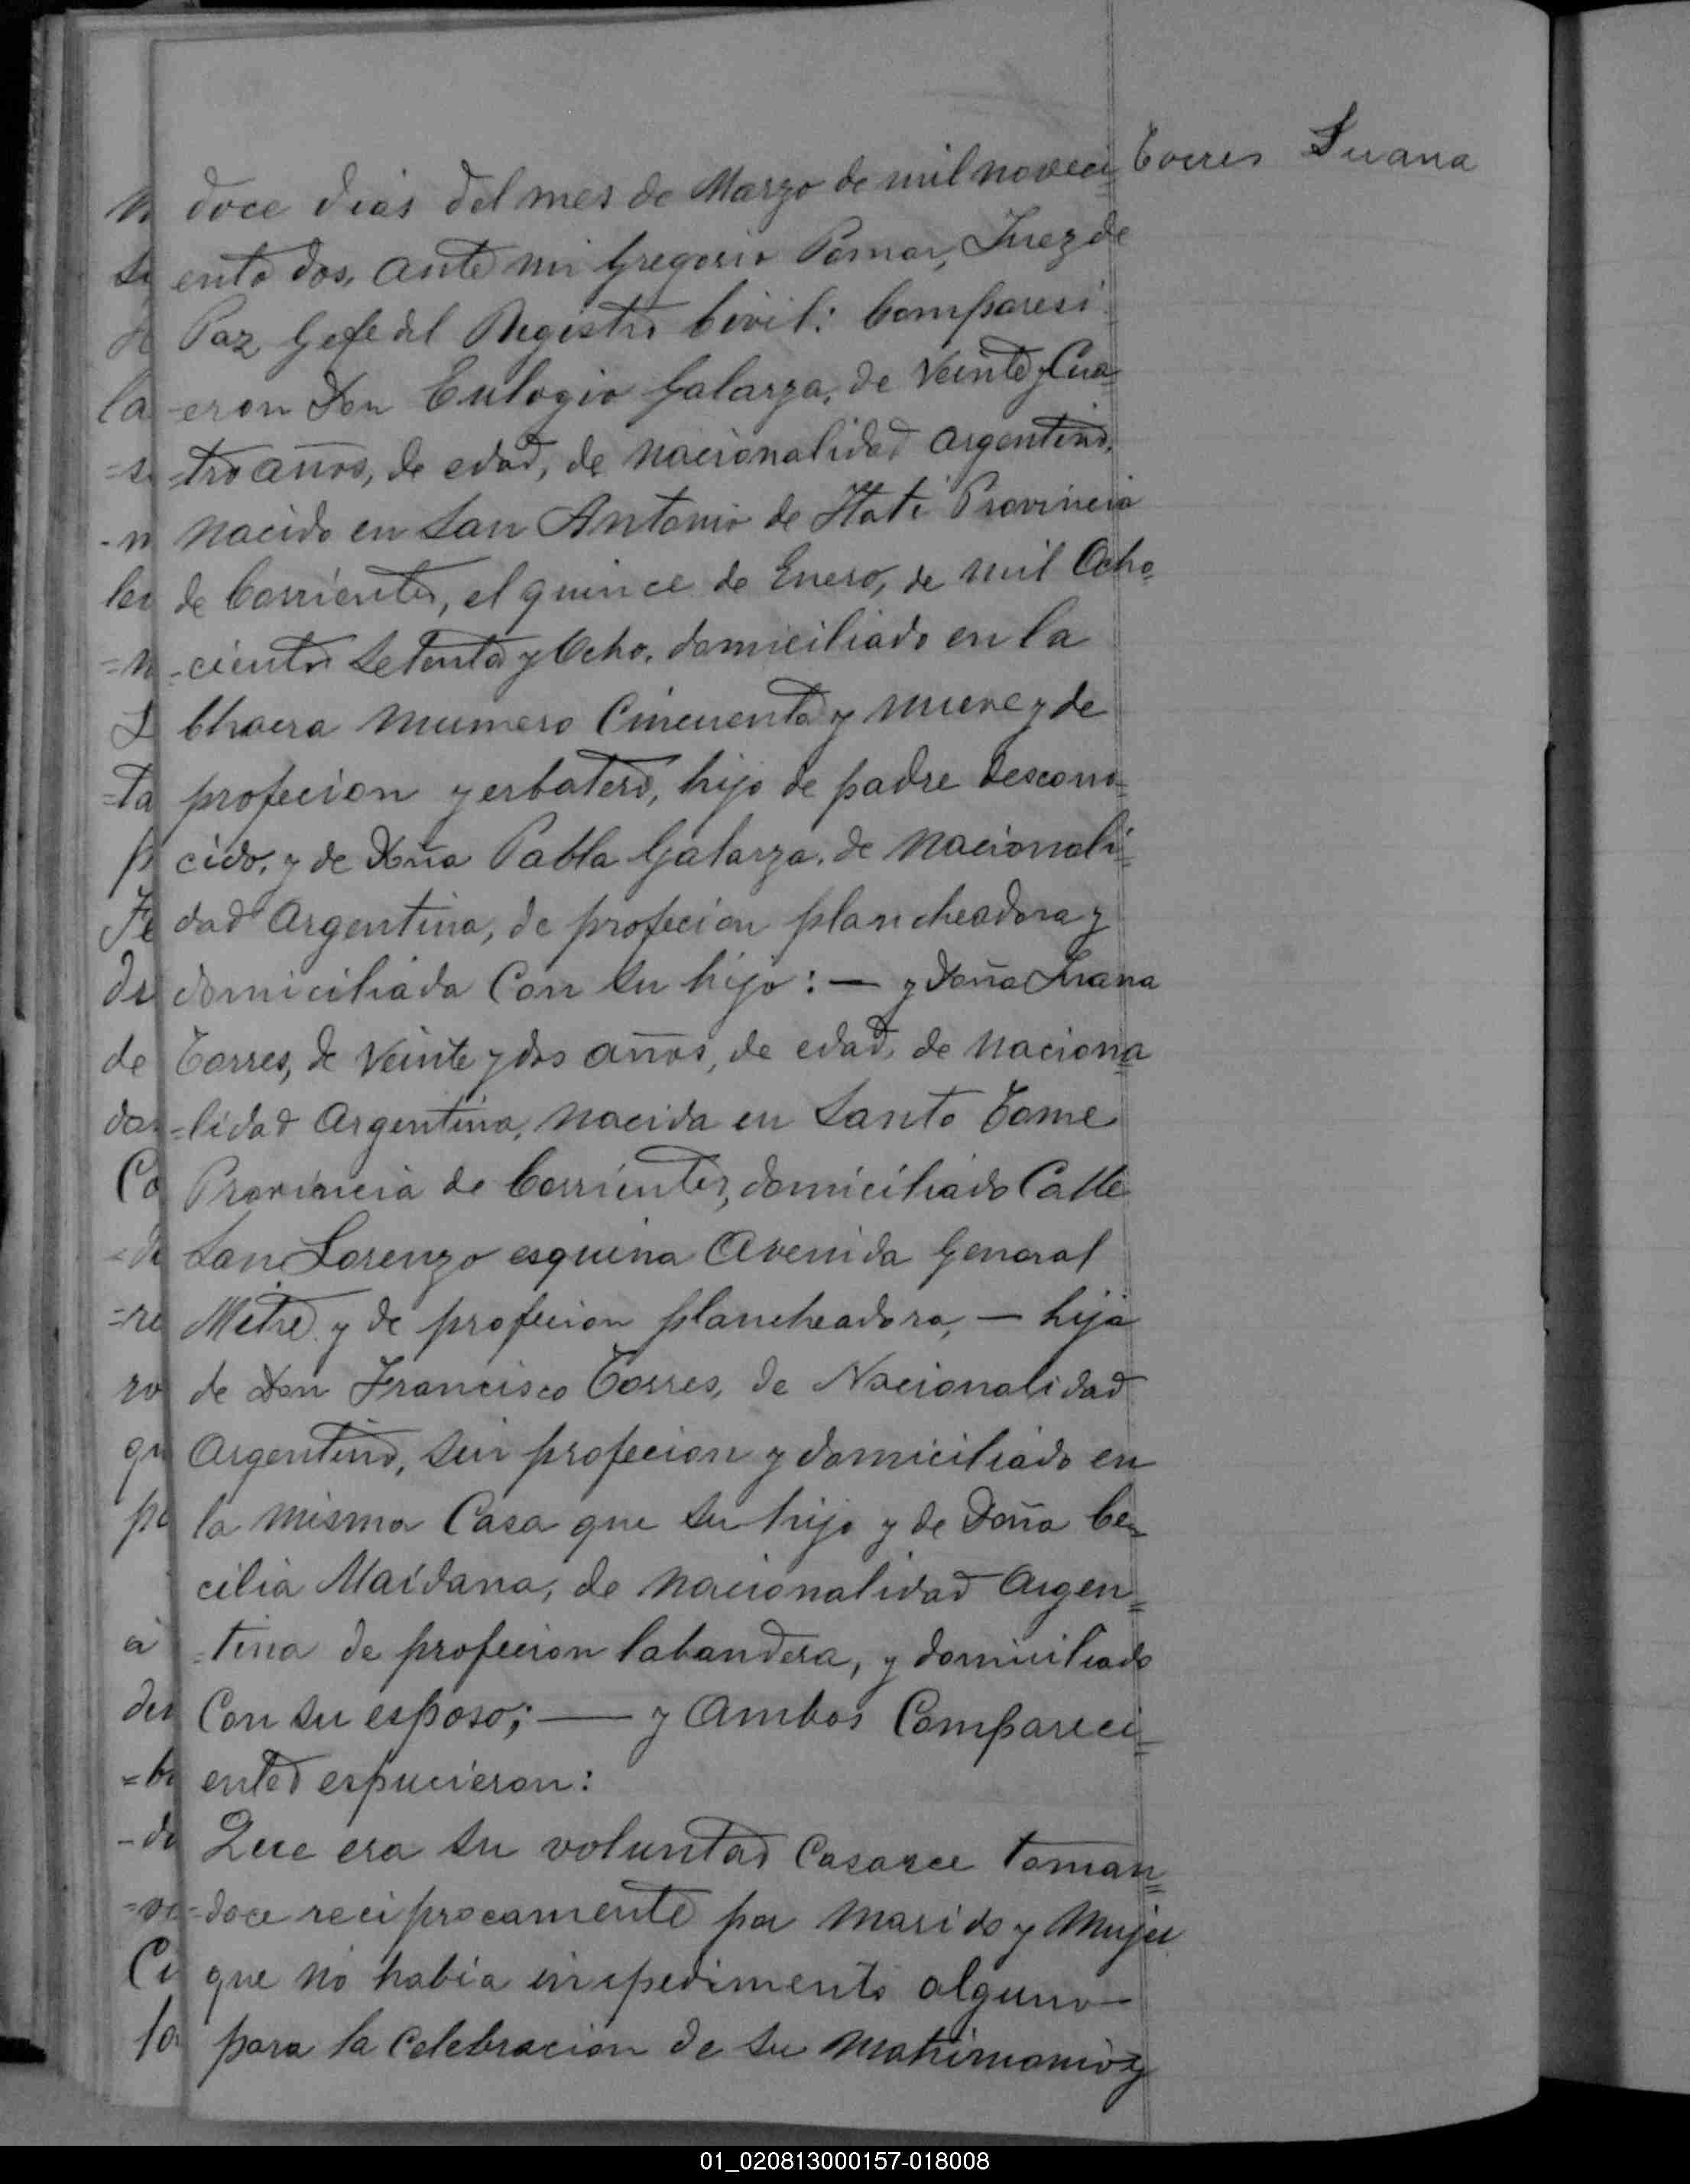 Torres Juana
doce dias del mes de Marzo de mil noveci=
ento dos, ante mi Gregorio Pomar, Juez de
Paz Gefe del Registro Civil: Compareci
-eron Don Eulogio Galarza, de Veinte y Cua
-tro años, de edad, de nacionalidad argentino,
nacido en San Antonio de Itati Provincia
de Corrientes, el quince de Enero, de mil Ocho
-cientos Setenta y Ocho, domiciliado en la
Chacra numero Cincuenta y nueve y de
profecion yerbatero, hijo de padre descono=
cido, y de Doña Pabla Galarza, de nacionali=
dad Argentina, de profecion plancheadora y
domiciliada Con su hijo: — y Doña Juana
Torres, de Veinte y dos años, de edad, de naciona
=lidad Argentina, nacida en Santo Tome
Provincia de Corrientes, domiciliado Calle
San Lorenzo esquina Avenida General
Mitre y de profecion plancheadora, — hija
de Don Francisco Torres, de Nacionalidad
Argentino, sin profecion y domiciliado en
la misma Casa que su hijo y de Doña Ce=
cilia Maidana, de nacionalidad Argen=
=tina de profecion labandera, y domiciliado
Con su esposo; — y Ambos Compareci=
entes espucieron:
Que era su voluntad Casarce toman=
=doce reciprocamente por marido y Mujer
que no habia impedimento alguno
para la Celebracion de su matrimonio y
la
de
Ca
01_020813000157-018008